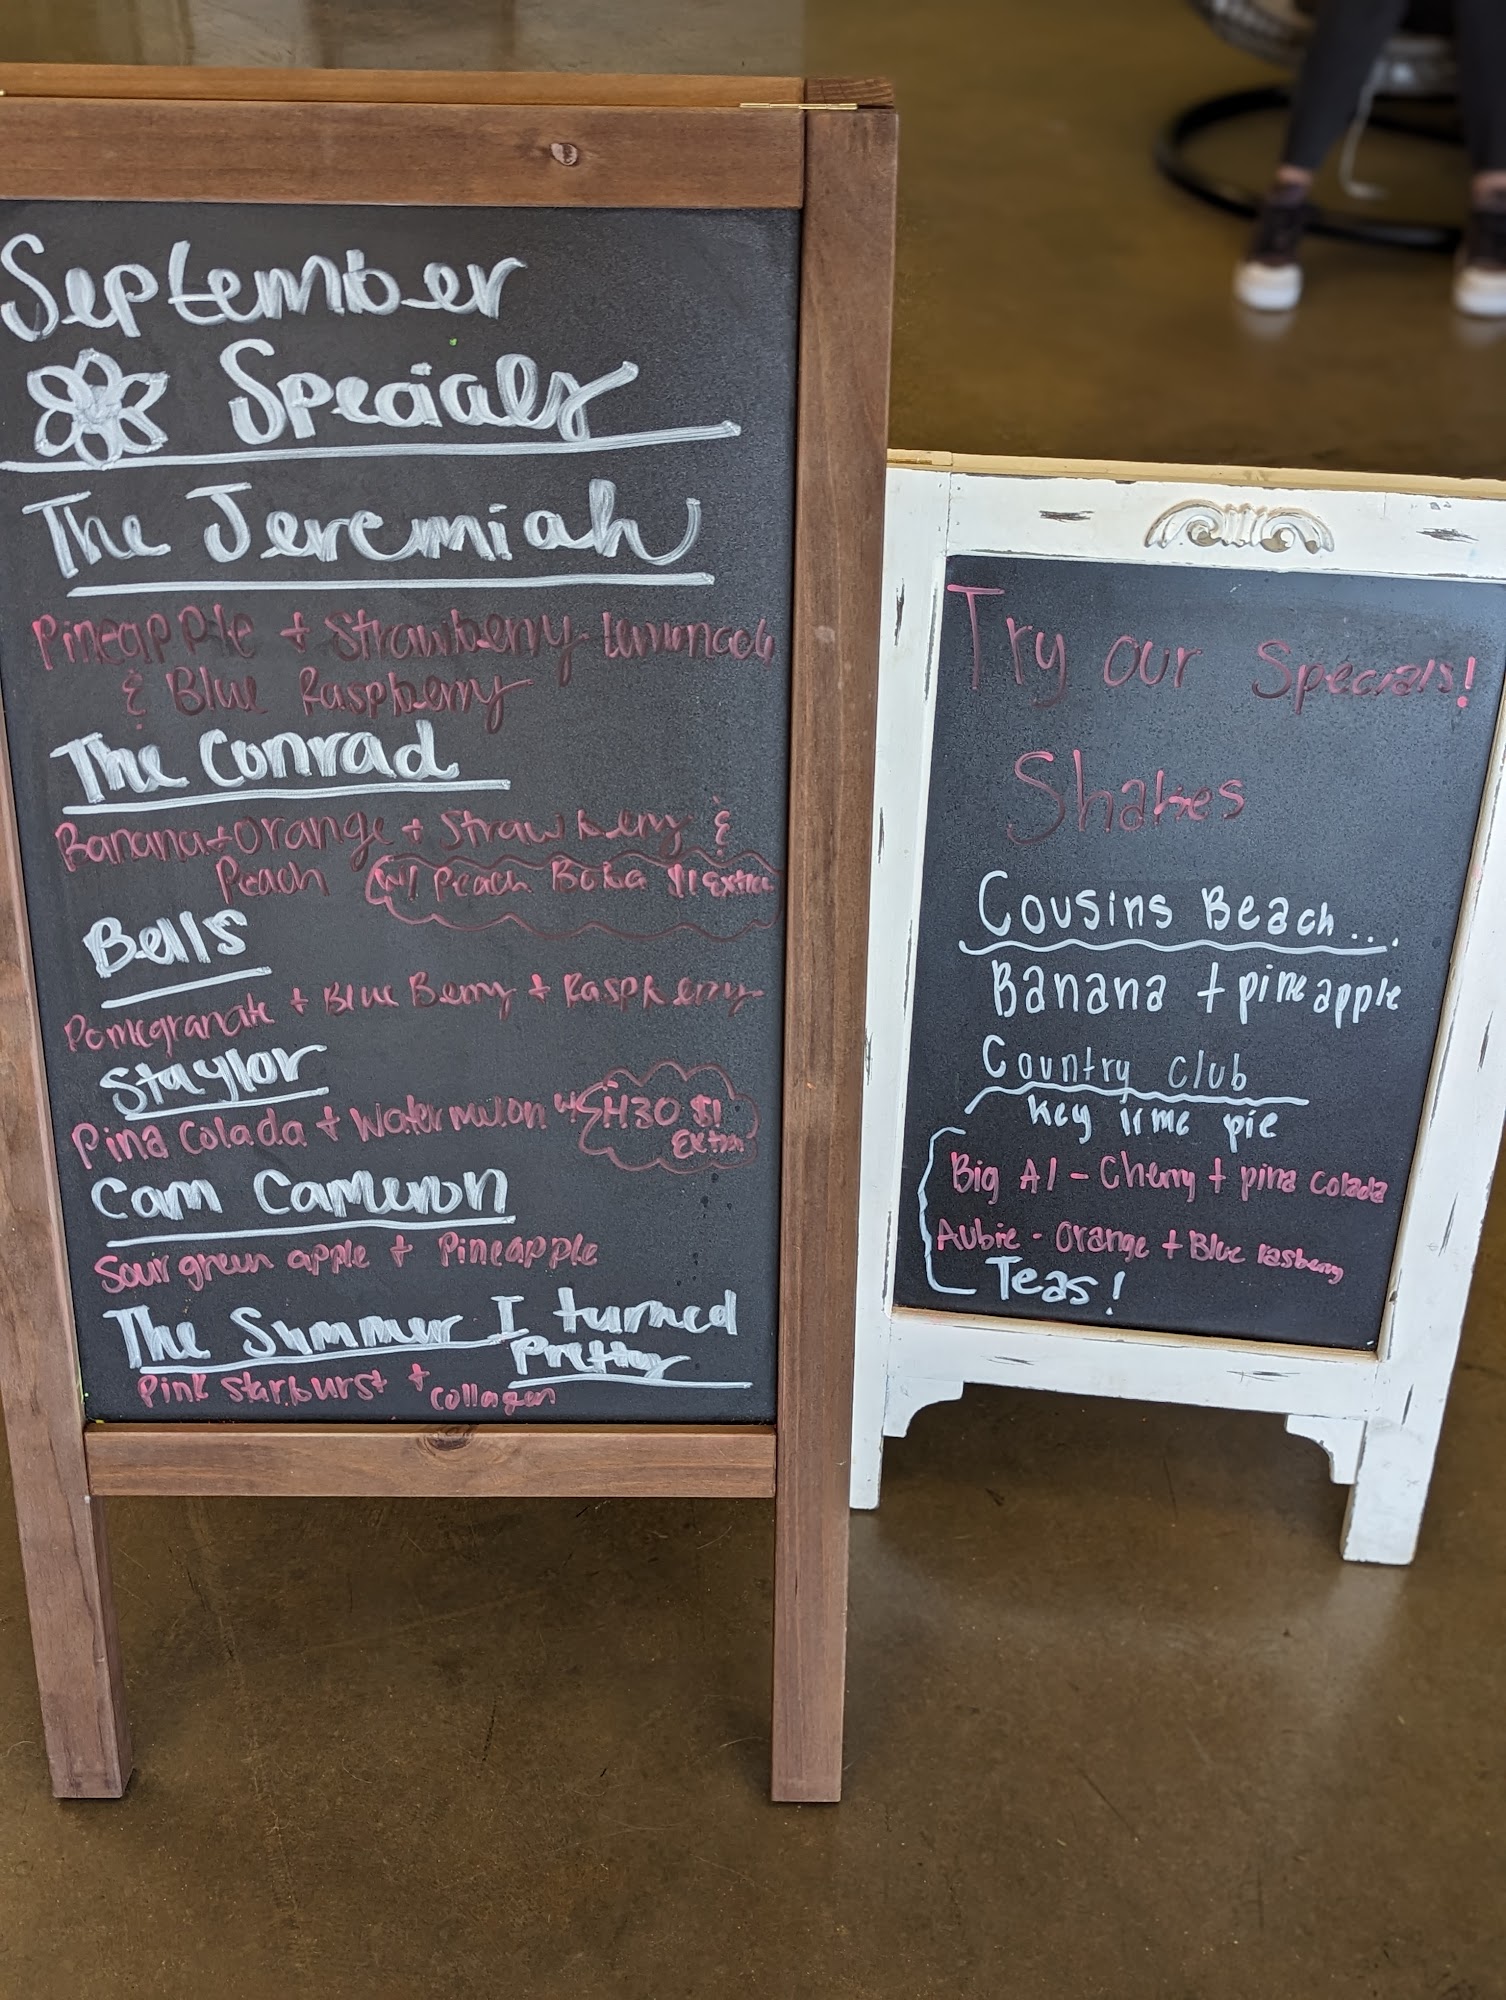 September
Specials
The Jeremiah
Pineapple + Strawberry lemonade
& Blue Raspberry
The Conrad
Banana + Orange + Strawberry &
Peach w/ Peach Boba $1 Extra
Bells
Pomegranate + Blue Berry + Raspberry
Staylor
Pina Colada + Watermelon w/ H30 $1
Extra
Cam Cameron
Sour green apple + Pineapple
The Summer I turned
Pretty
Pink starburst + collagen
Try our Specials!
Shakes
Cousins Beach...
Banana + pineapple
Country club
Key lime pie
Big Al - Cherry + pina colada
Aubie - Orange + Blue rasberry
Teas!